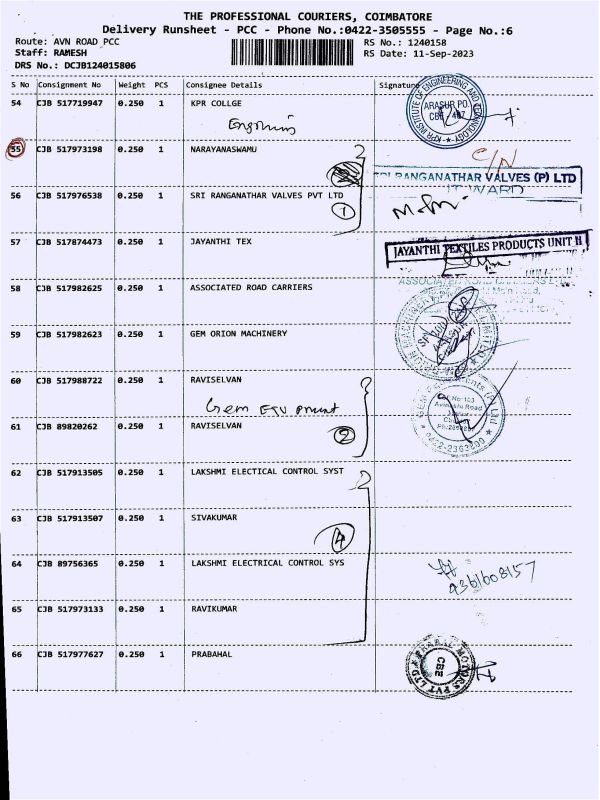 THE PROFESSIONAL COURIERS, COIMBATORE
Delivery Runsheet - PCC - Phone No.:0422-3505555 - Page No.:6
Route: AVN ROAD PCC RS No.: 1240158
Staff: RAMESH RS Date: 11-Sep-2023
DRS No.: DCJB124015806
S No Consignment No Weight PCS Consignee Details Signature
54 CJB 517719947 0.250 1 KPR COLLGE
KPR INSTITUTE OF ENGINEERING AND TECHNOLOGY
ARASUR PO.
CBE 407
55 CJB 517973198 0.250 1 NARAYANASWAMU
C/N
SRI RANGANATHAR VALVES (P) LTD
56 CJB 517976538 0.250 1 SRI RANGANATHAR VALVES PVT LTD
1
57 CJB 517874473 0.250 1 JAYANTHI TEX
JAYANTHI TEXTILES PRODUCTS UNIT II
58 CJB 517982625 0.250 1 ASSOCIATED ROAD CARRIERS
ASSOCIATED ROAD
59 CJB 517982623 0.250 1 GEM ORION MACHINERY
60 CJB 517988722 0.250 1 RAVISELVAN
Gem
61 CJB 89820262 0.250 1 RAVISELVAN
2
0422-2363800
62 CJB 517913505 0.250 1 LAKSHMI ELECTICAL CONTROL SYST
63 CJB 517913507 0.250 1 SIVAKUMAR
4
64 CJB 89756365 0.250 1 LAKSHMI ELECTRICAL CONTROL SYS
9361608157
65 CJB 517973133 0.250 1 RAVIKUMAR
66 CJB 517977627 0.250 1 PRABAHAL
MOTORS PVT LTD
CBE